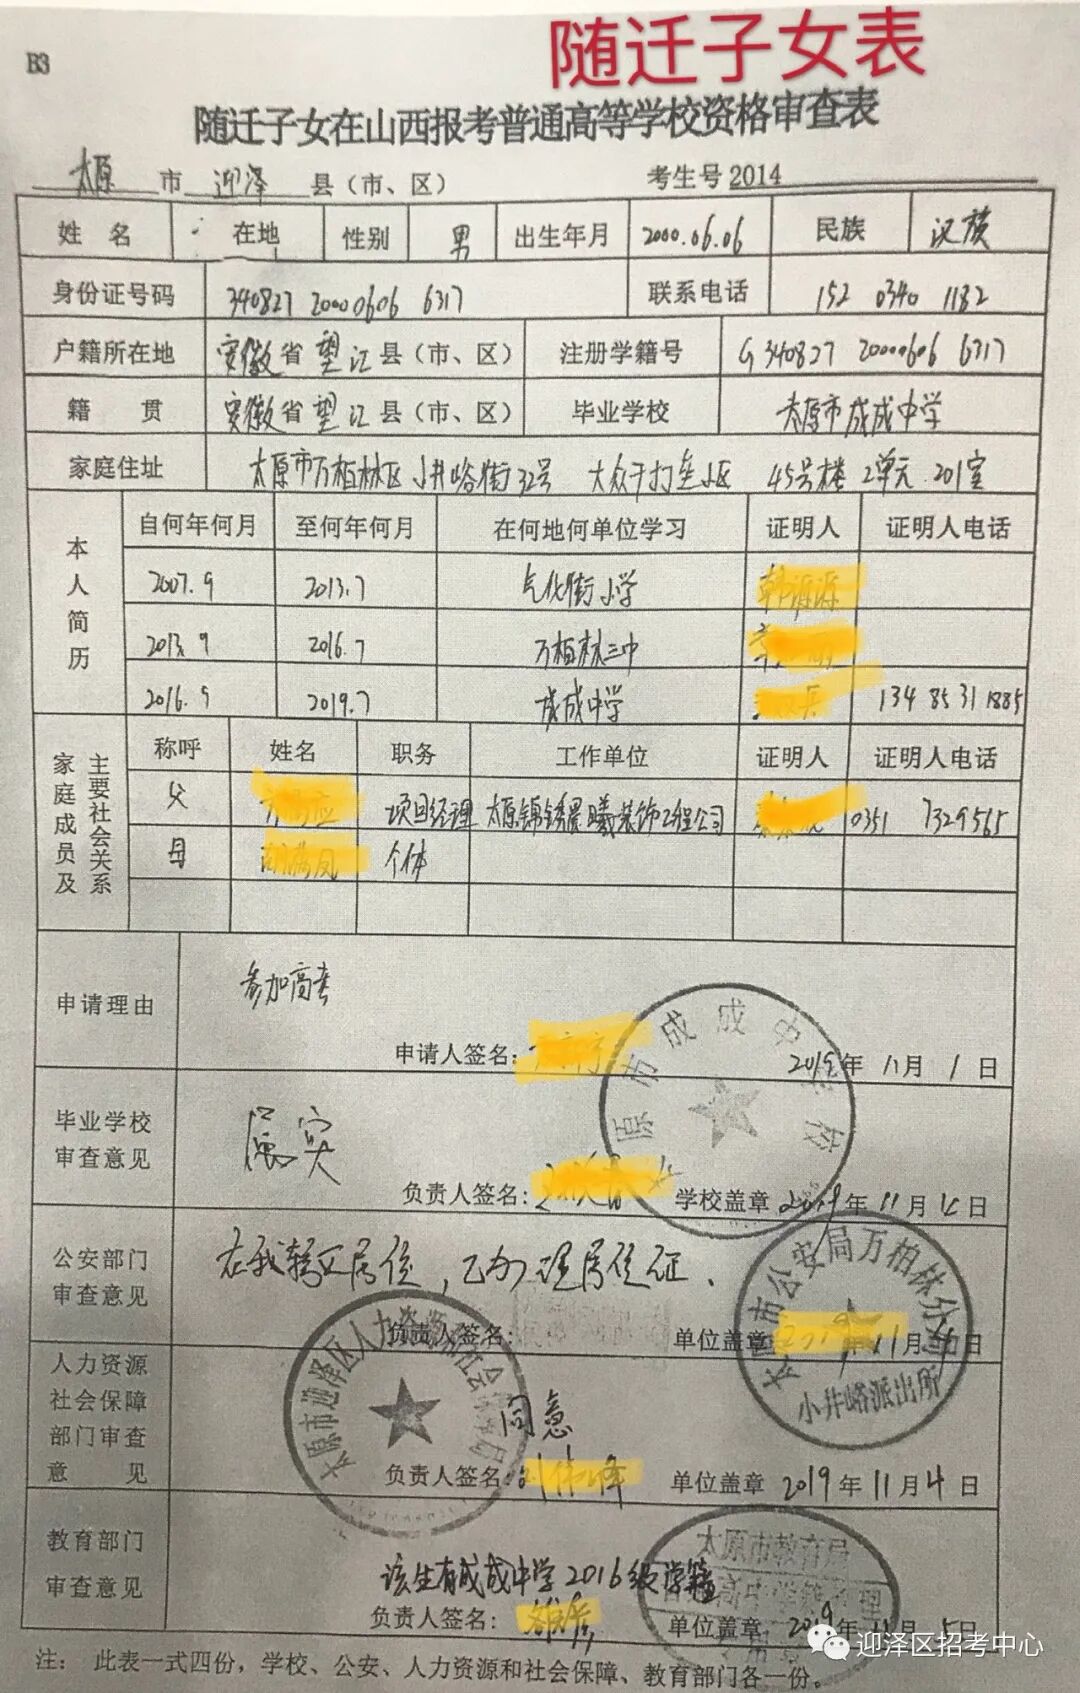 随迁子女表
B3
随迁子女在山西报考普通高等学校资格审查表
太原 市 迎泽 县（市、区） 考生号 2014
姓 名 在地 性别 男 出生年月 2000.06.06 民族 汉族
身份证号码 340827 20000606 6317 联系电话 152 0340 1182
户籍所在地 安徽省望江县（市、区） 注册学籍号 G 340827 20000606 6317
籍 贯 安徽省望江县（市、区） 毕业学校 太原市成成中学
家庭住址 太原市万柏林区小井峪街32号 大众干打垒小区 45号楼 2单元 201室
本人简历 自何年何月 至何年何月 在何地何单位学习 证明人 证明人电话
2007.9 2013.7 气化街小学
2013.9 2016.7 万柏林三中
2016.9 2019.7 成成中学 134 8531 1885
家庭成员及主要社会关系 称呼 姓名 职务 工作单位 证明人 证明人电话
父 项目经理 太原锦绣晨曦装饰工程公司 0351 7329565
母 个体
申请理由 参加高考
申请人签名: 2019年 11月 1日
太原市成成中学校
毕业学校审查意见 属实
负责人签名: 学校盖章 2019年 11月 4日
公安部门审查意见 在我辖区居住，已办理居住证.
负责人签名: 单位盖章 2019年 11月 4日
太原市公安局万柏林分局
小井峪派出所
人力资源社会保障部门审查意见 同意
太原市迎泽区人力资源和社会保障局
负责人签名: 单位盖章 2019年 11月 4日
教育部门审查意见 该生有成成中学2016级学籍
负责人签名: 单位盖章 2019年 11月 5日
太原市教育局
普通高中学籍管理
注： 此表一式四份，学校、公安、人力资源和社会保障、教育部门各一份。
迎泽区招考中心